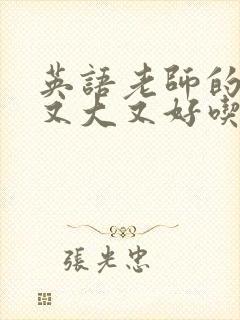 英語老師的
又大又好喫
張光忠